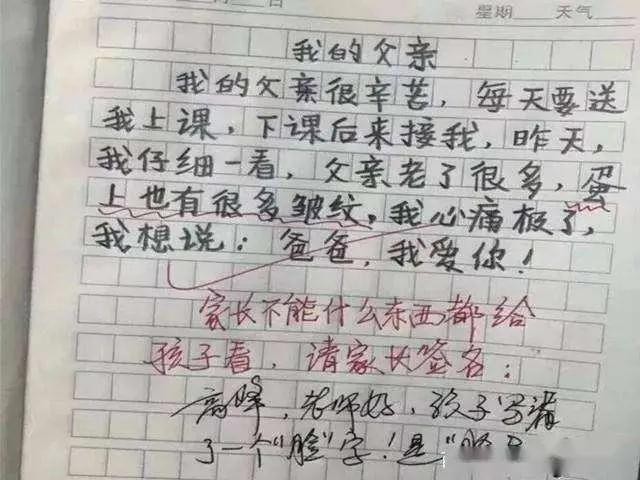 星期 天气
我的父亲
我的父亲很辛苦,每天要送
我上课,下课后来接我,昨天,
我仔细一看,父亲老了很多,蛋
上也有很多皱纹,我心痛极了,
我想说:爸爸,我爱你!
家长不能什么东西都给
孩子看,请家长签名:
高峰,老师好,孩子写错
了一个“脸”字!是“